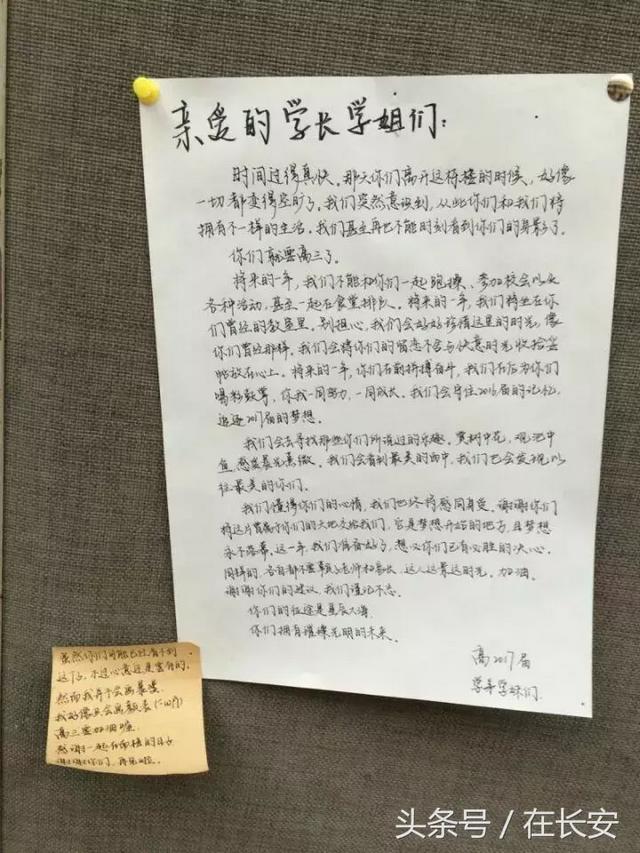 亲爱的学长学姐们:
时间过得真快。那天你们离开这栋楼的时候,好像
一切都变得空旷了。我们突然意识到,从此你们和我们将
拥有不一样的生活。我们甚至再也不能时刻看到你们的身影了。
你们就要高三了。
将来的一年,我们不能和你们一起跑操、参加校会以及
各种活动,甚至一起在食堂排队。将来的一年,我们将坐在你
们曾经的教室里。别担心,我们会好好珍惜这里的时光,像
你们曾经那样。我们会将你们的留恋不舍与快意时光收拾
放在心上。将来的一年,你们在前拼搏奋斗,我们在后为你们
喝彩鼓掌,你我一同努力,一同成长。我们会守住2016届的记忆,
追逐2017届的梦想。
我们会去寻找那些你们所说过的乐趣。赏树中花,观池中
鱼,感受晨光熹微。我们会看到最美的西中,我们也会发现以
往最美的你们。
我们懂得你们的心情,我们也终将感同身受。谢谢你们
将这片曾属于你们的天地交给我们,它是梦想开始的地方,且梦想
永不落幕。这一年,我们准备好了,想必你们已有必胜的决心。
同样的,各自都不要辜负老师和家长,这人这景这时光。加油。
谢谢你们的建议,我们谨记不忘。
你们的征途是星辰大海
你们拥有璀璨光明的未来。
高2017届
学弟学妹们
虽然你们可能已经看不到
这了,不过心意还是要有的。
然而我并不会画
我好像只会画颜表
高三要加油嘛
感谢一起在南楼的日子
谢谢你们,再见啦。
头条号/在长安